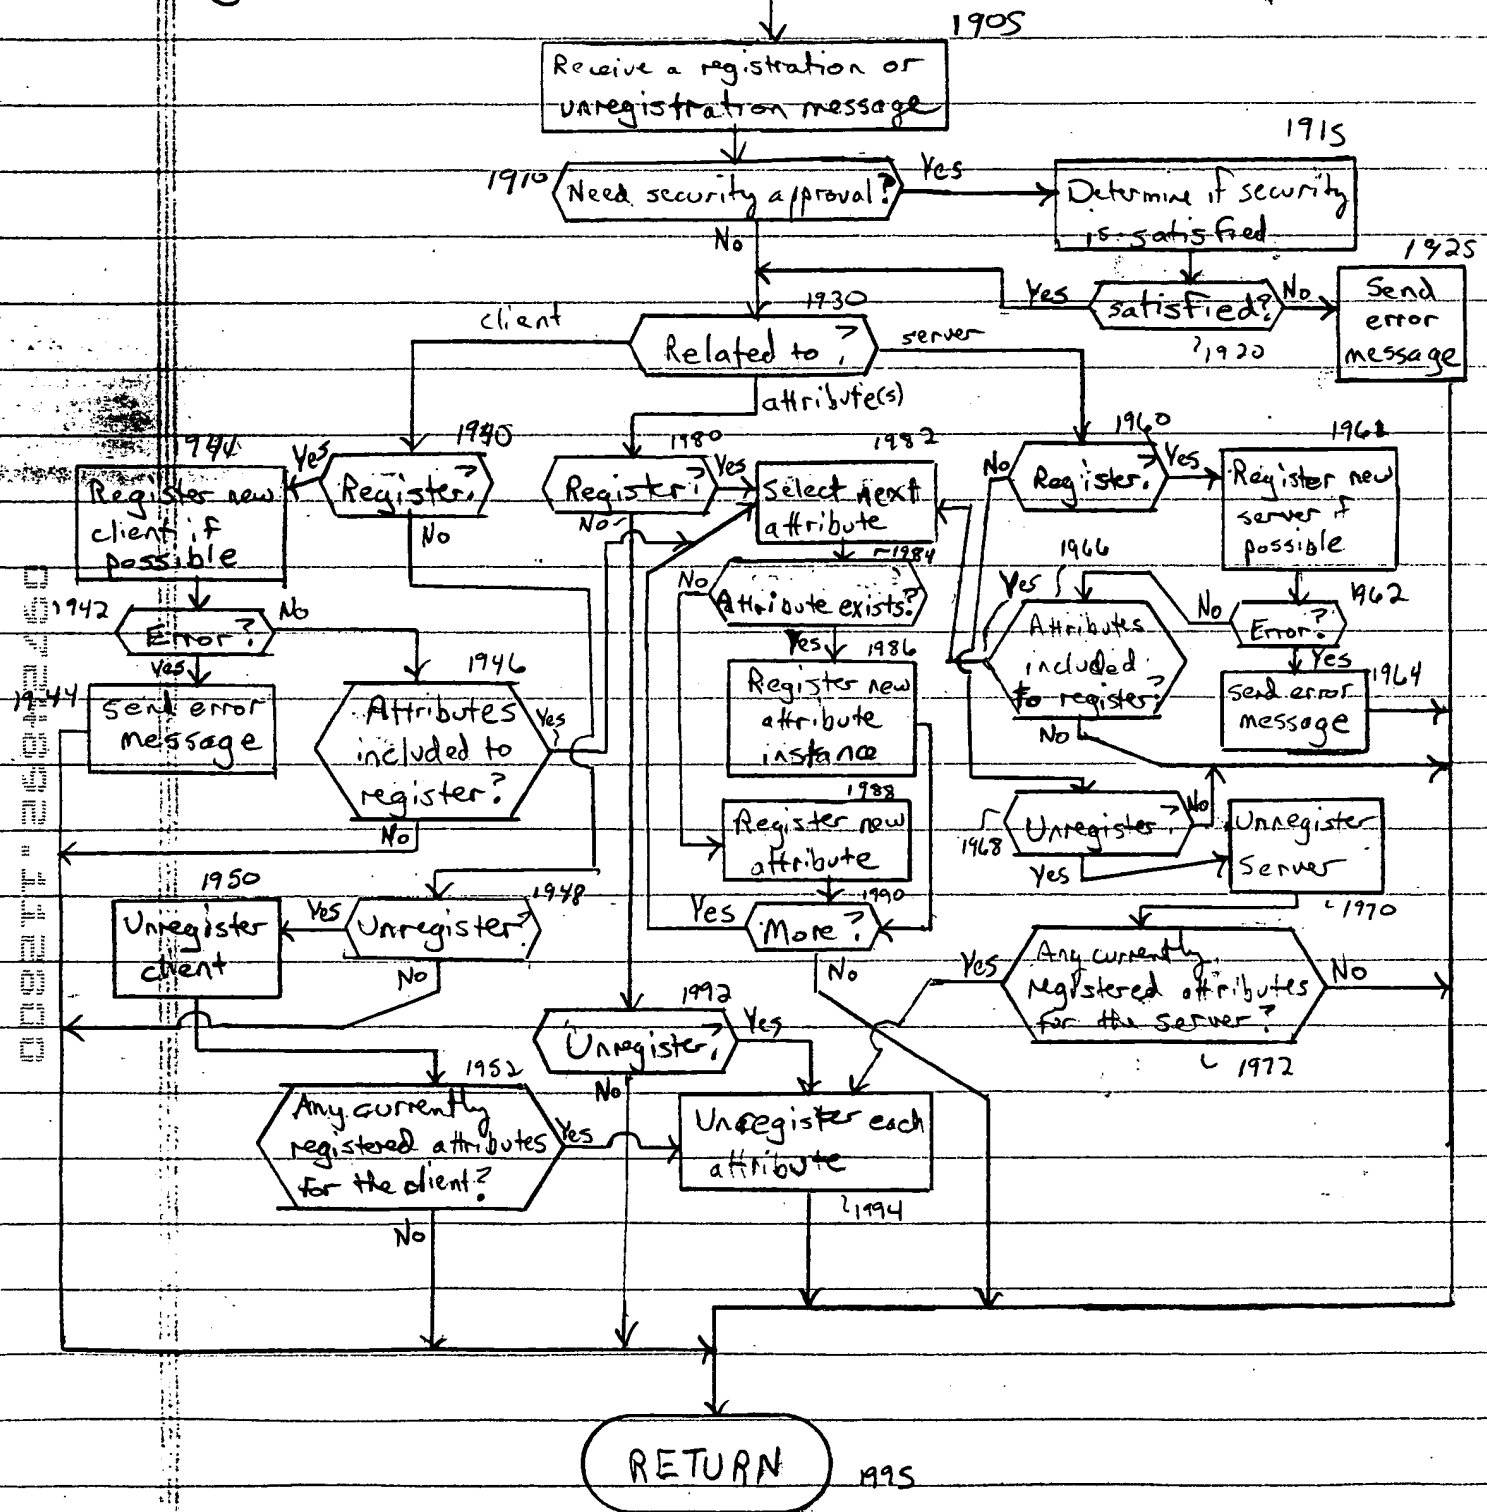 1905
Receive a registration or
unregistration message
1910
Need security approval?
Yes
No
1915
Determine if security
is satisfied
1925
Send
error
message
Yes
satisfied?
No
1920
1930
client
Related to ?
server
attribute(s)
1940
Yes
Register?
No
Register new
client if
possible
1942
Error?
No
Yes
1944
Send error
message
1946
Attributes
included to
register?
Yes
No
1948
Unregister?
Yes
No
1950
Unregister
client
1952
Any currently
registered attributes
for the client?
Yes
No
1980
Register?
Yes
No
1982
Select next
attribute
1984
Attribute exists?
No
Yes
1986
Register new
attribute
instance
1988
Register new
attribute
1990
More?
Yes
No
1992
Unregister?
Yes
No
Unregister each
attribute
1994
1960
No
Register?
Yes
Register new
server if
possible
1962
Error?
No
Yes
1964
Send error
message
1966
Yes
Attributes
included
to register?
No
1968
Unregister?
No
Yes
Unregister
Server
1970
Any currently
registered attributes
for the server?
Yes
No
1972
RETURN
1995